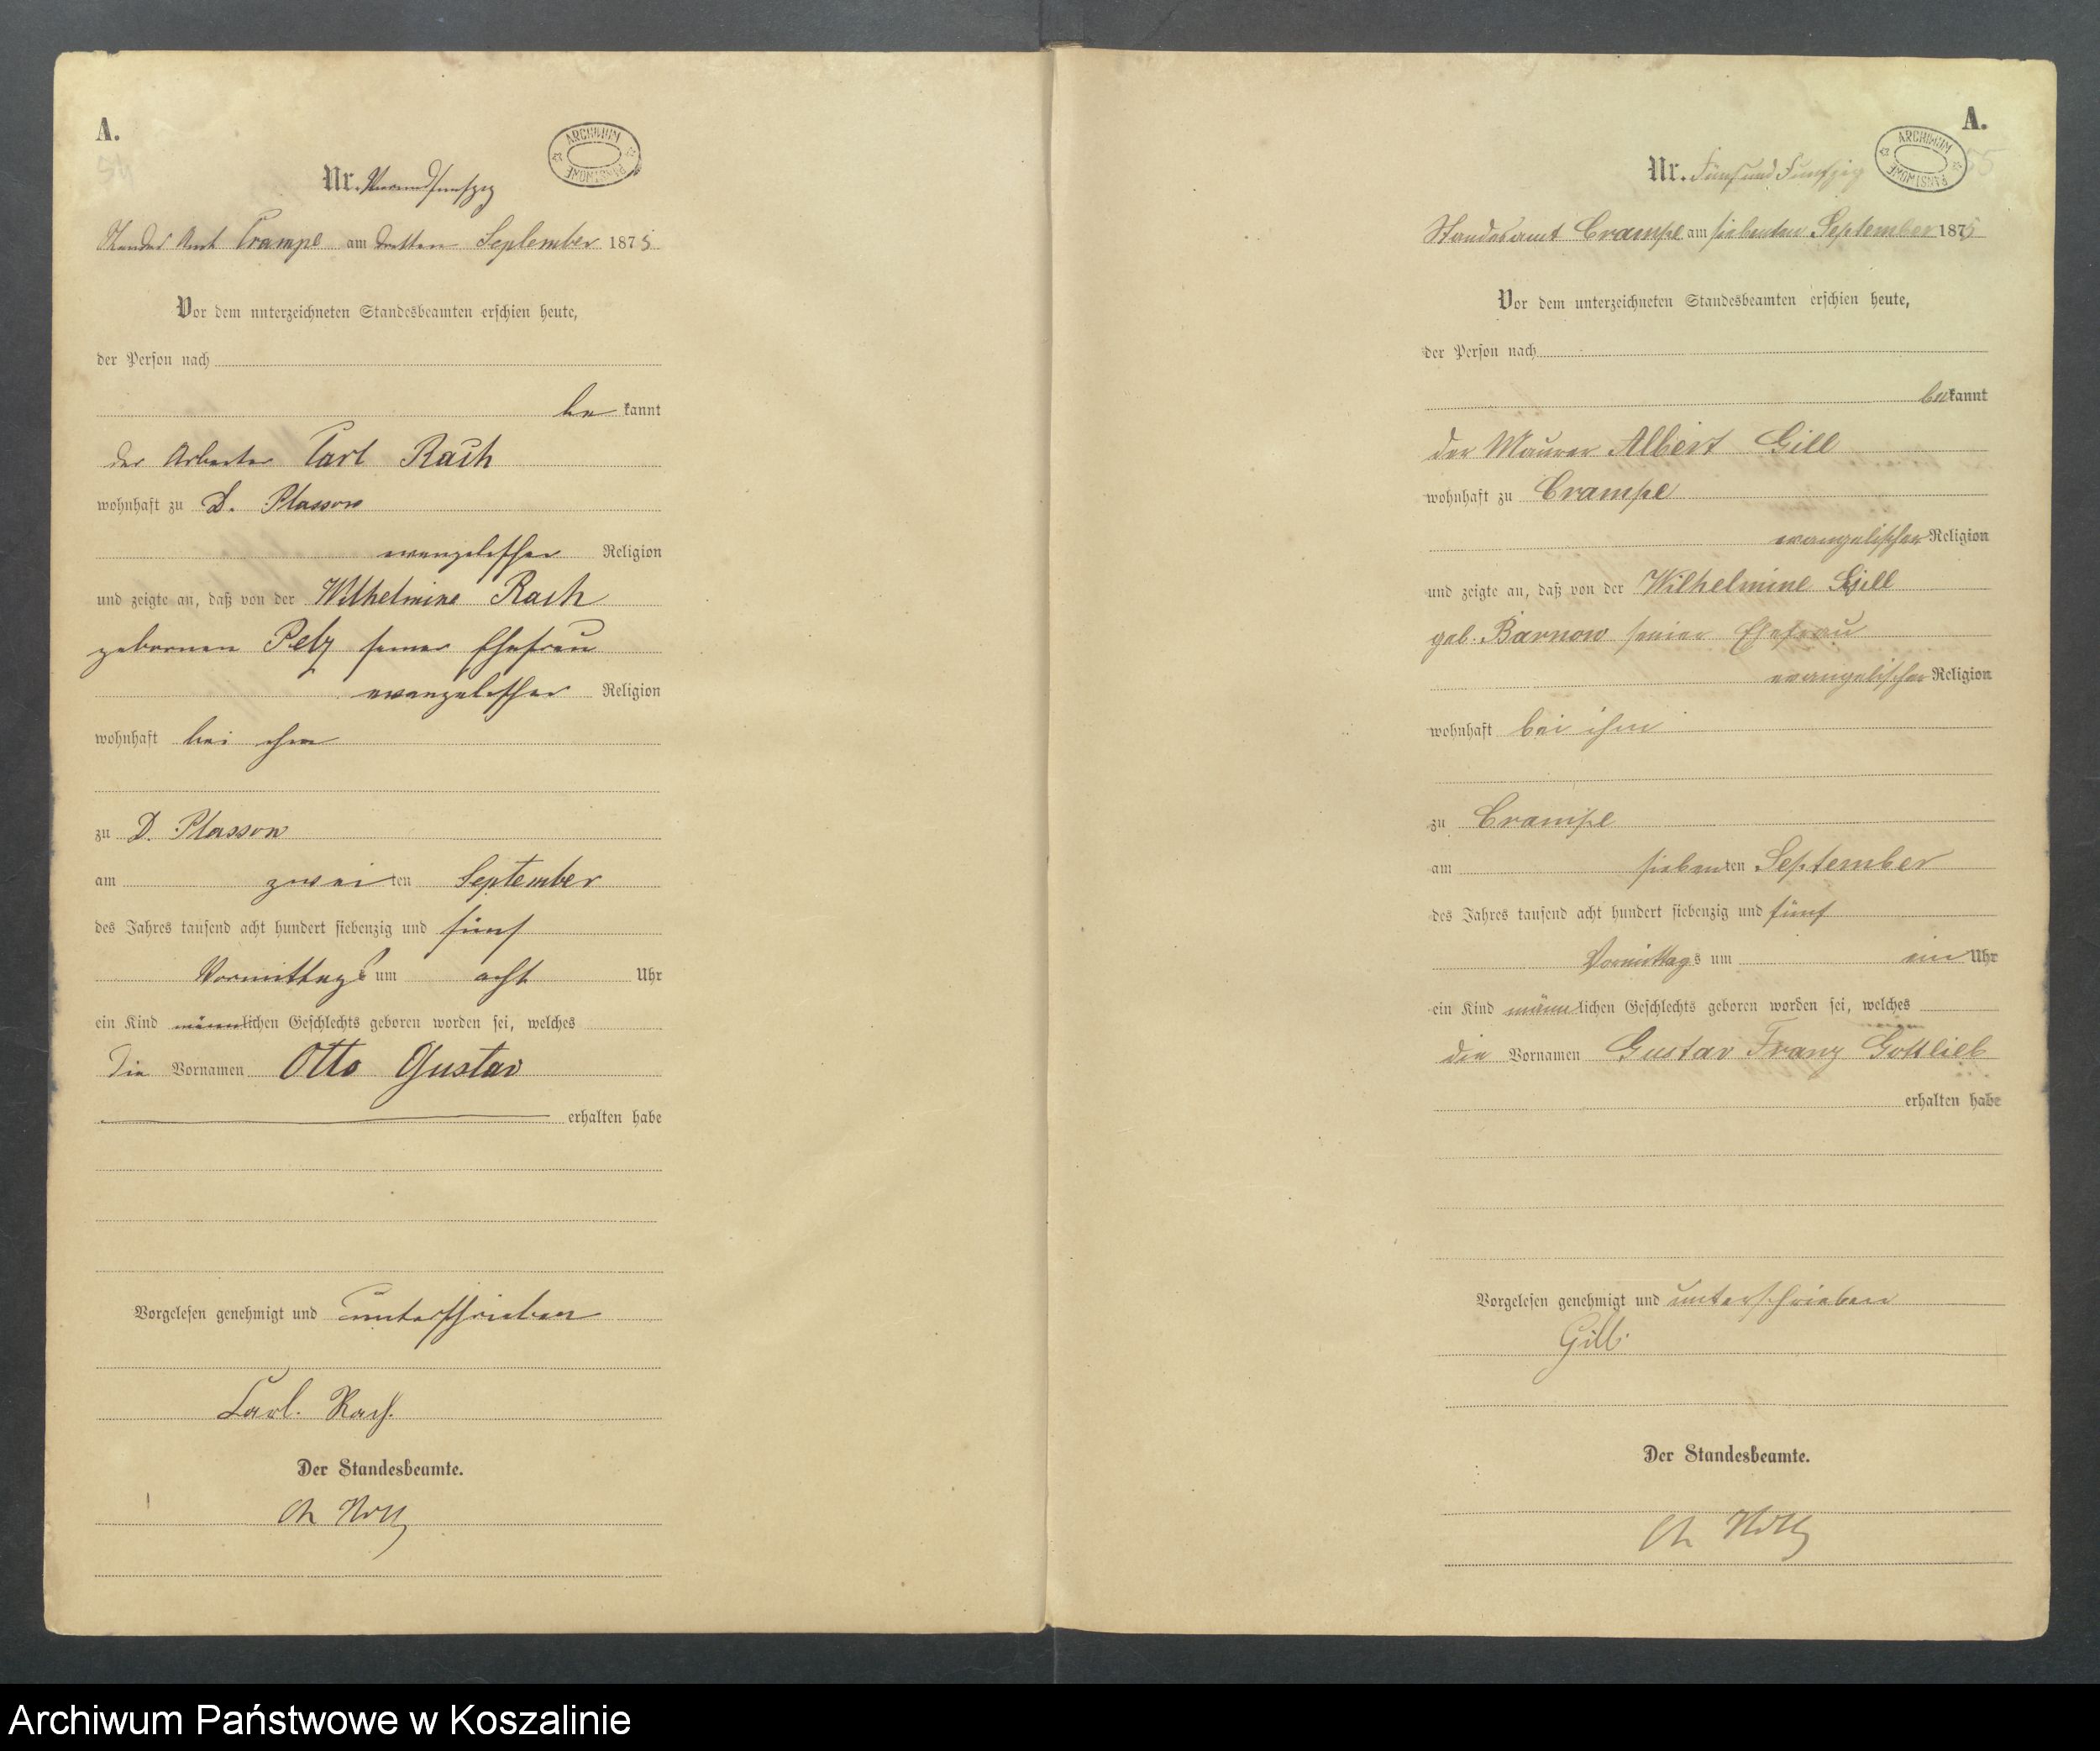 A.
54
ARCHIWUM PAŃSTWOWE
Nr. Vierundfunfzig
Standes Amt Crampe am dritten September 1875
Vor dem unterzeichneten Standesbeamten erschien heute,
der Person nach
be kannt
der Arbeiter Carl Rach
wohnhaft zu D. Plassow
evangelischer Religion
und zeigte an, daß von der Wilhelmine Rach
gebornen Petz seiner Ehefrau
evangelischer Religion
wohnhaft bei ihm
zu D. Plassow
am zweiten September
des Jahres tausend acht hundert siebenzig und fünf
Vormittags um acht Uhr
ein Kind männlichen Geschlechts geboren worden sei, welches
die Vornamen Otto Gustav
erhalten habe
Vorgelesen genehmigt und unterschrieben
Carl. Rach.
Der Standesbeamte.
A.
55
ARCHIWUM PAŃSTWOWE
Nr. Fünf und Funfzig
Standesamt Crampe am siebenten September 1875
Vor dem unterzeichneten Standesbeamten erschien heute,
der Person nach
bekannt
der Maurer Albert Gill
wohnhaft zu Crampe
evangelischer Religion
und zeigte an, daß von der Wilhelmine Gill
geb. Barnow seiner Ehefrau
evangelischer Religion
wohnhaft bei ihm
zu Crampe
am siebenten September
des Jahres tausend acht hundert siebenzig und fünf
Vormittags um ein Uhr
ein Kind männlichen Geschlechts geboren worden sei, welches
die Vornamen Gustav Franz Gottlieb
erhalten habe
Vorgelesen genehmigt und unterschrieben
Gill.
Der Standesbeamte.
Archiwum Państwowe w Koszalinie